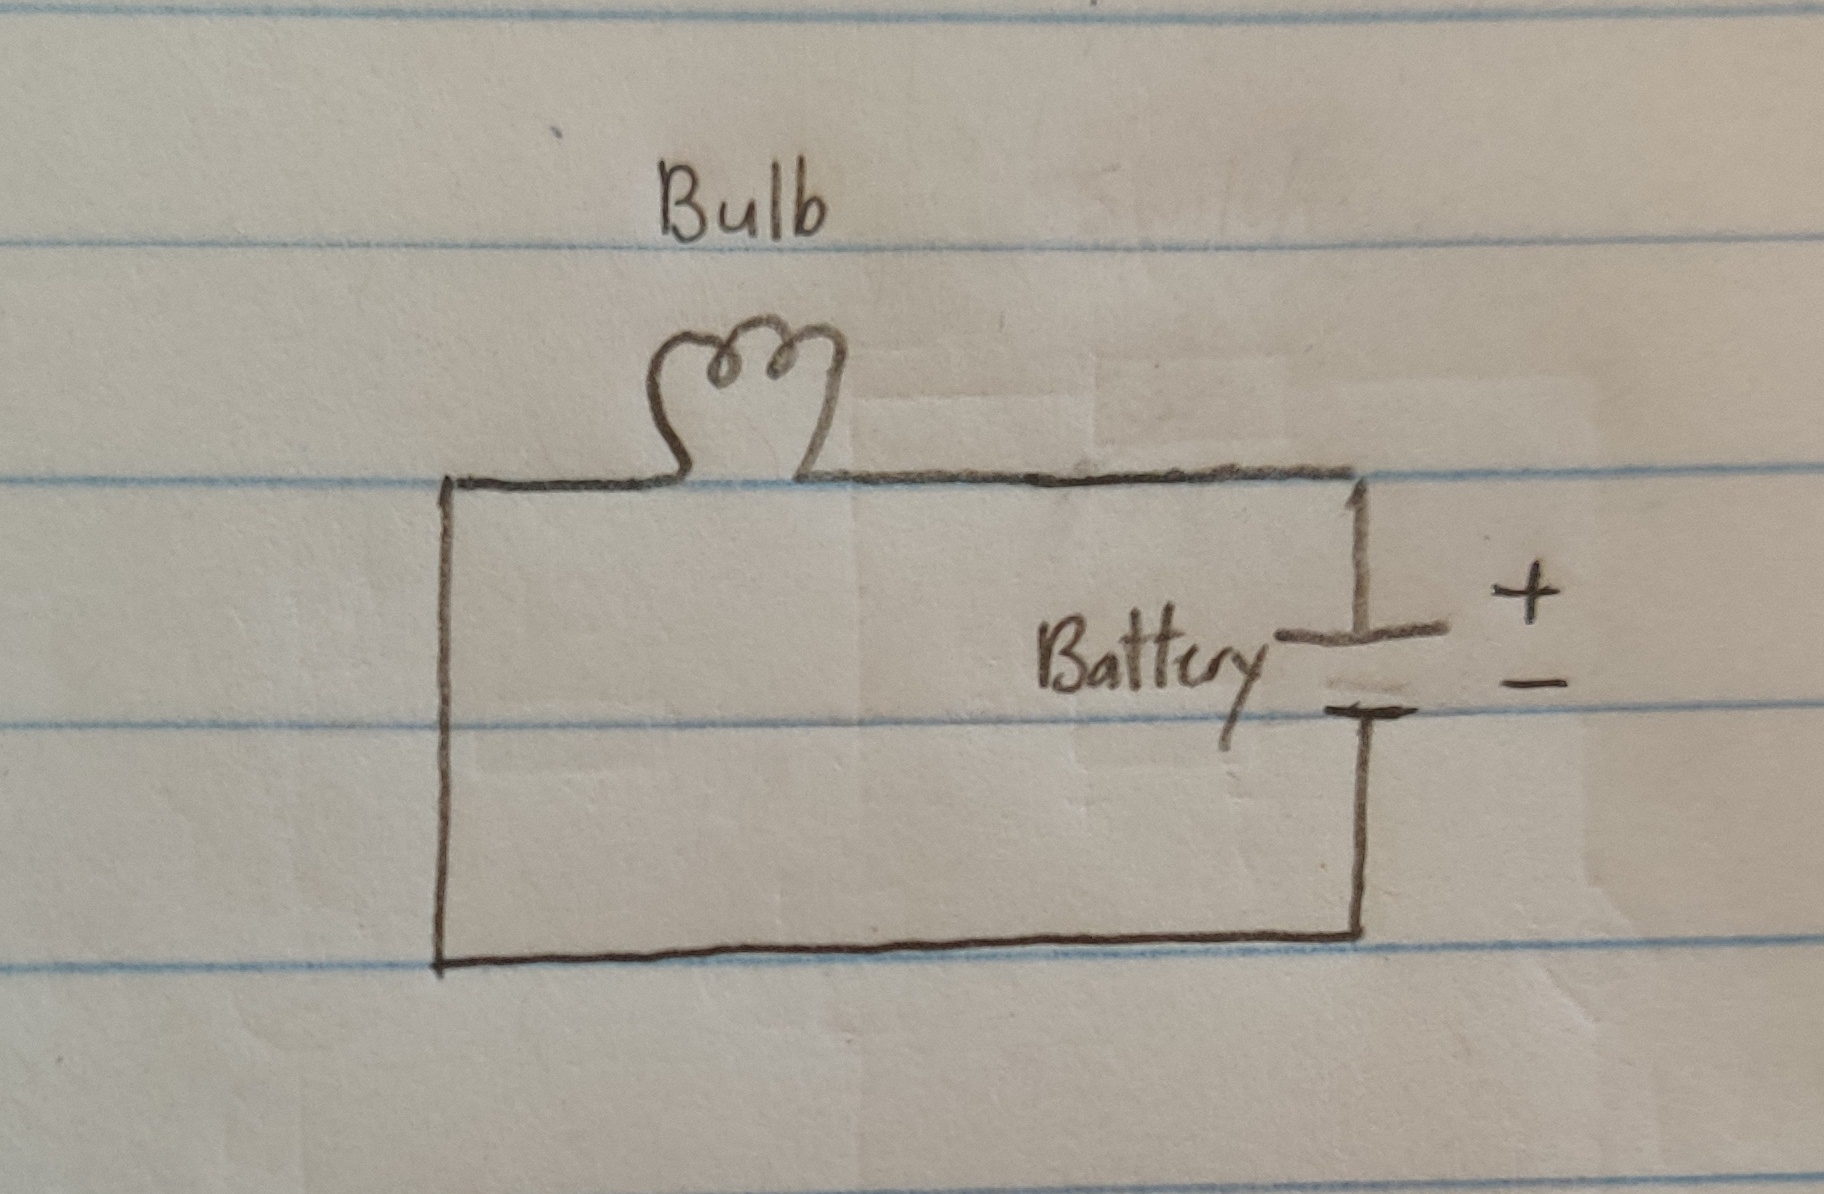 Bulb
Battery
+
-